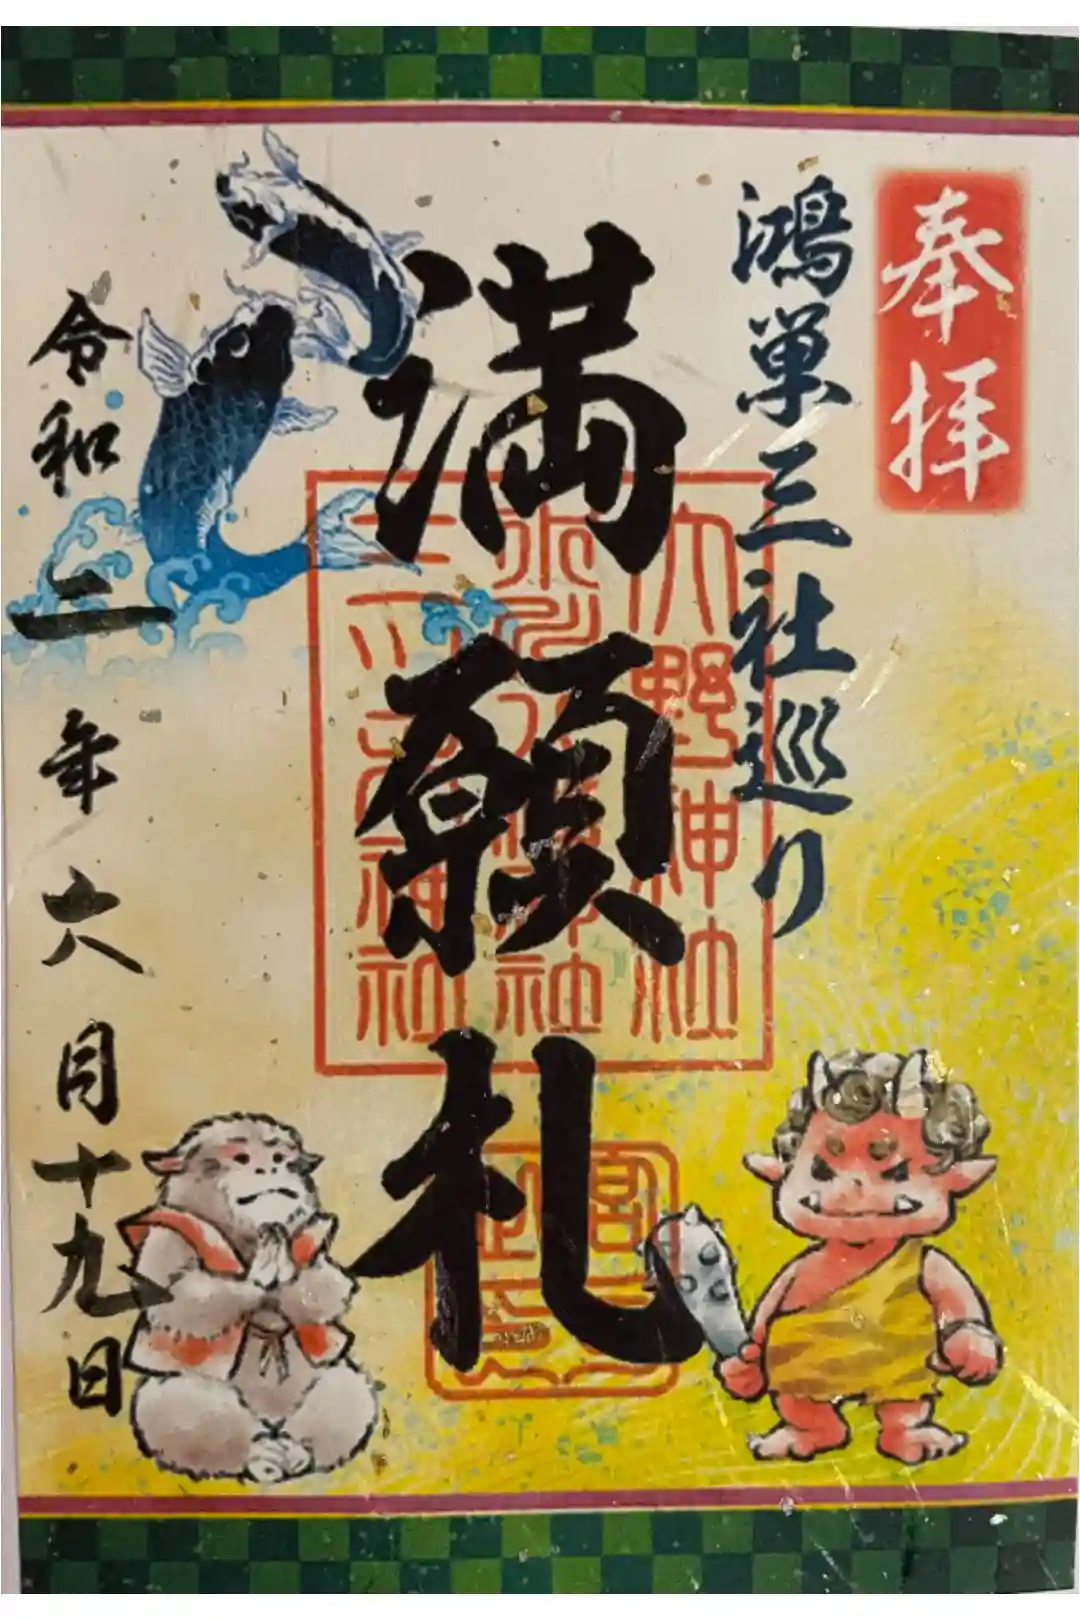 奉拝
鴻巣三社巡り
満願札
大野神社
三ツ木神社
令和二年六月十九日